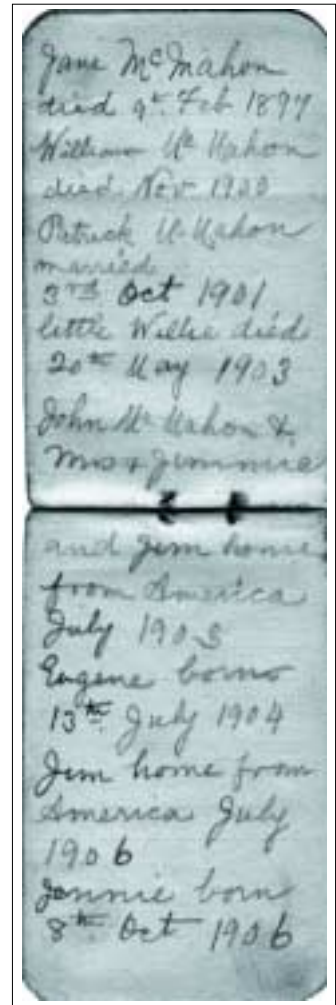 Jane McMahon
died 9th Feb 1897
William McMahon
died Nov 1900
Patrick McMahon
married
3rd Oct 1901
little Willie died
20th May 1903
John McMahon &
Jimmie
and Jim home
from America
July 1903
Eugene born
13th July 1904
Jim home from
America July
1906
Jennie born
8th Oct 1906